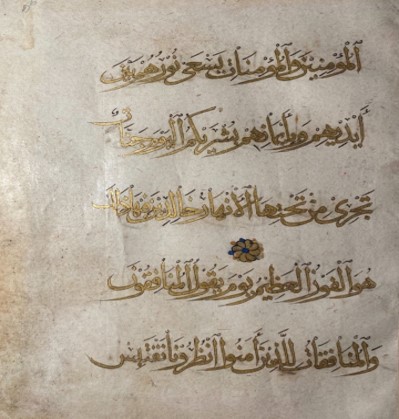 ٱلمؤمنين وٱلمؤمنات يسعى نورهم بين
أيديهم وبأيمانهم بشريكم ٱليوم جنات
تجرى من تحتها ٱلأنهار خالدين فيها ذلك
هو ٱلفوز ٱلعظيم يوم يقول ٱلمنافقون
وٱلمنافقات للذين ءامنوا ٱنظرونا نقتبس